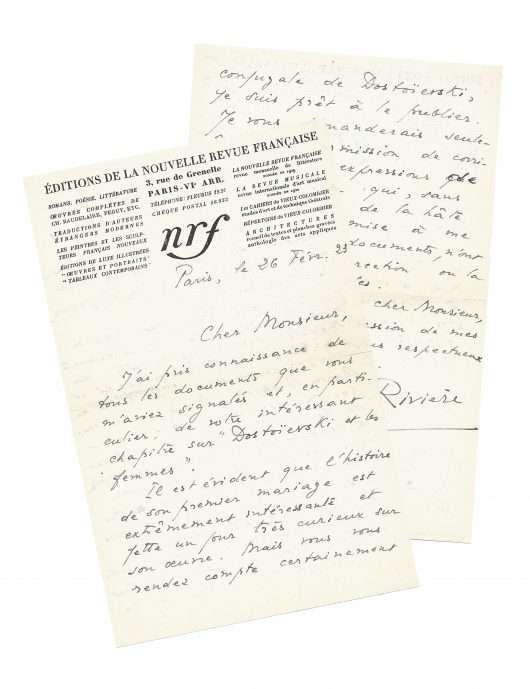 ÉDITIONS DE LA NOUVELLE REVUE FRANÇAISE
ROMANS, POÉSIE, LITTÉRATURE
ŒUVRES COMPLÈTES DE
CH. BAUDELAIRE, PÉGUY, ETC.
TRADUCTIONS D'AUTEURS
ÉTRANGERS MODERNES
LES PEINTRES ET LES SCULP-
TEURS FRANÇAIS NOUVEAUX
ÉDITIONS DE LUXE ILLUSTRÉES
"ŒUVRES ET PORTRAITS"
"TABLEAUX CONTEMPORAINS"
3, rue de Grenelle
PARIS-VIᵉ ARR.
TÉLÉPHONE: FLEURUS
CHÈQUE POSTAL
nrf
LA NOUVELLE REVUE FRANÇAISE
revue mensuelle de littérature
LA REVUE MUSICALE
revue internationale d'art musical
Les CAHIERS du VIEUX-COLOMBIER
études d'art et de technique théâtrale
RÉPERTOIRE du VIEUX-COLOMBIER
ARCHITECTURES
recueil de textes et planches gravées
anthologie des arts appliqués
Paris, le 26 Févr. 23
Cher Monsieur,
J'ai pris connaissance de
tous les documents que vous
m'aviez signalés et, en parti-
culier, de votre intéressant
chapitre sur "Dostoïevski et les
femmes".
Il est évident que l'histoire
de son premier mariage est
extrêmement intéressante et
jette un jour très curieux sur
son œuvre. Mais vous vous
rendez compte certainement
conjugale de Dostoïevski,
je suis prêt à le publier.
Je vous manderais seule-
mission de corri-
expressions de
qui, sans
de la hâte
mise à me
documents, n'ont
rection ou la
cher Monsieur,
ssion de mes
us respectueux
Rivière